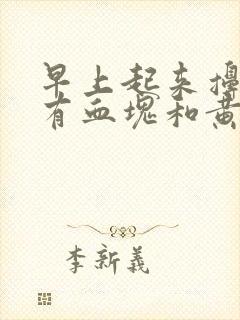 早上起来擤
有血块和黄
李新義